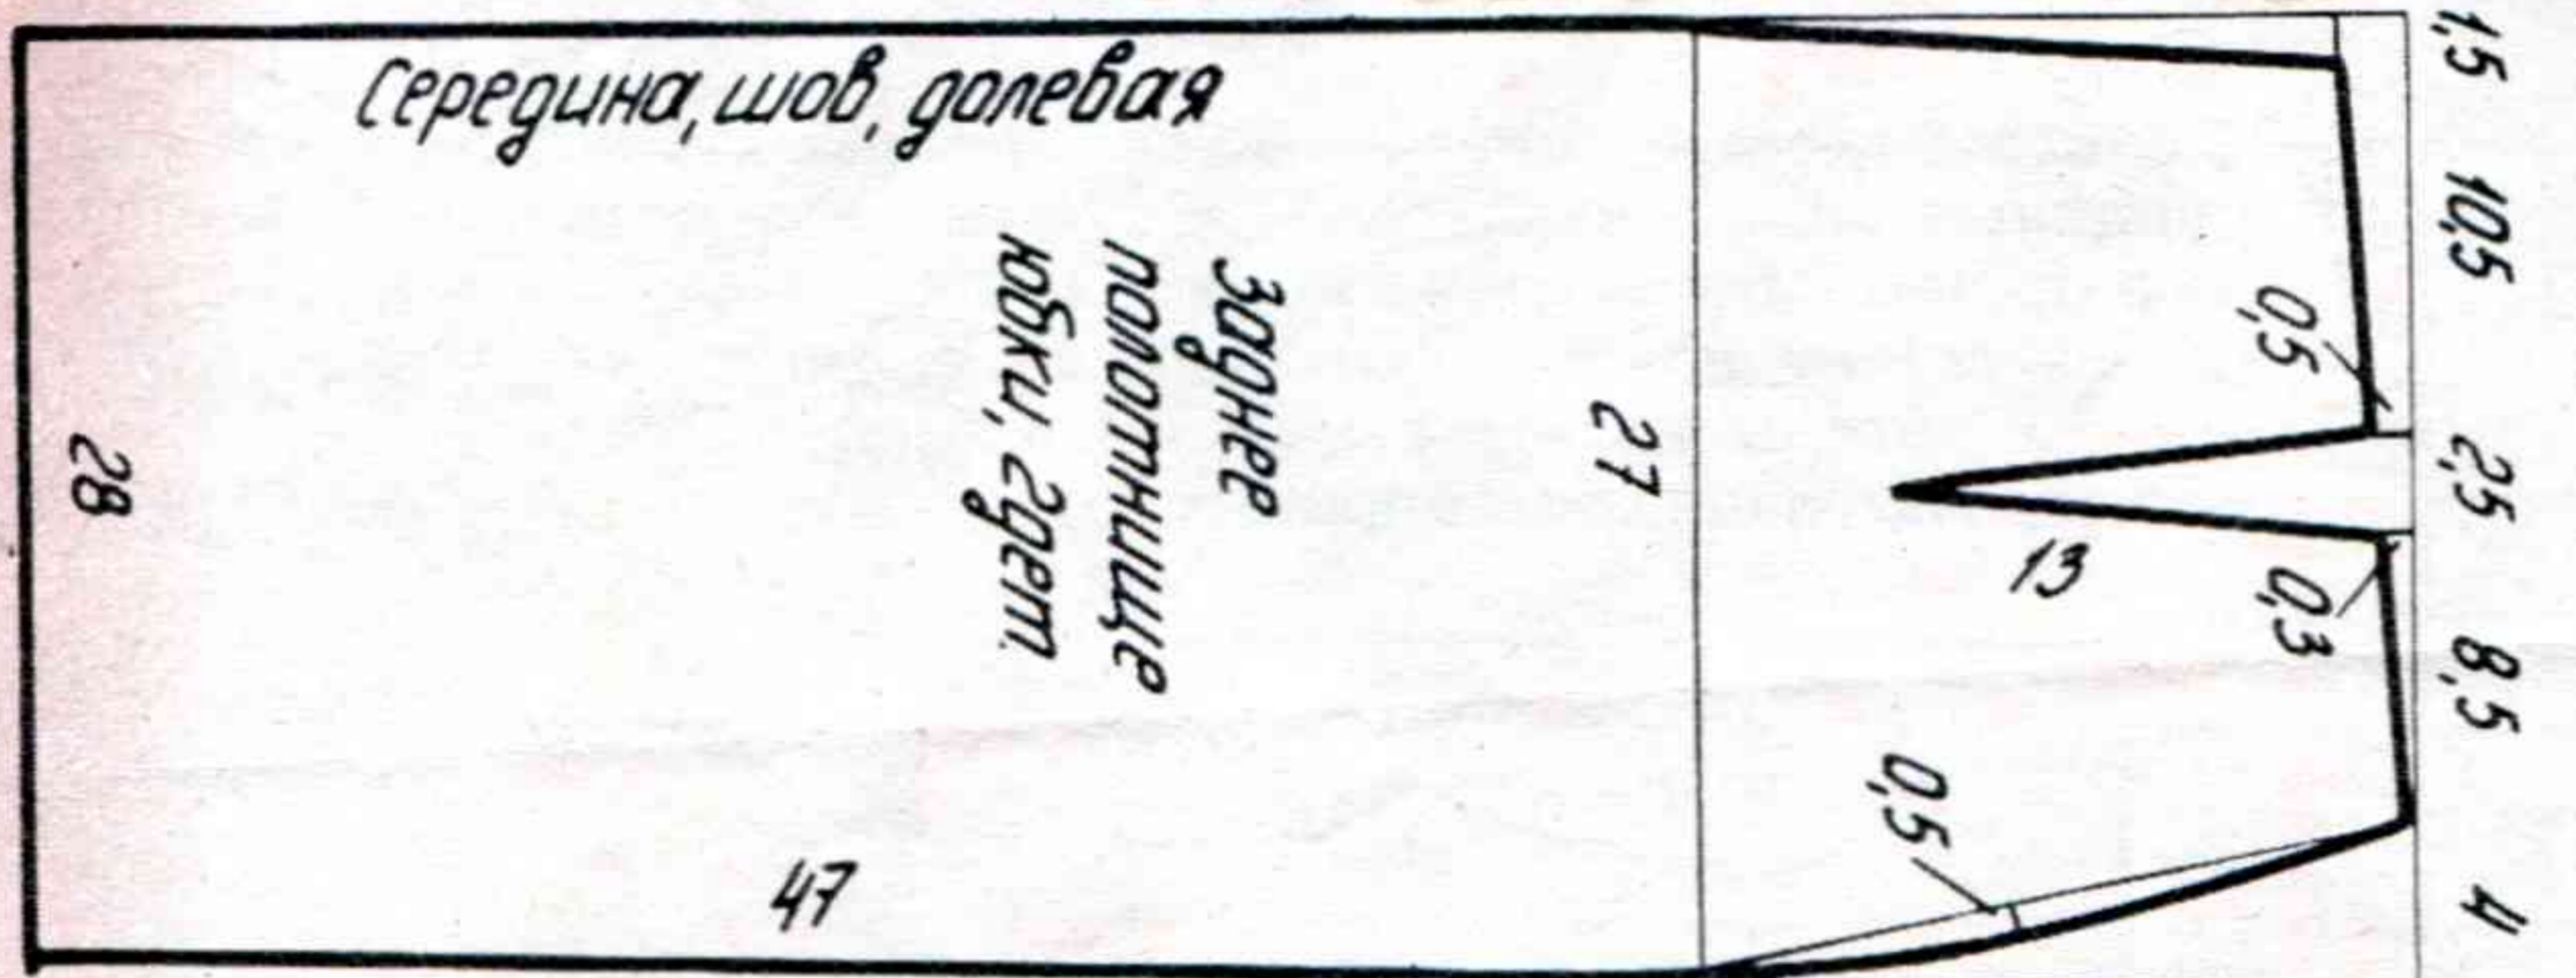 Середина, шов, долевая
Заднее
полотнище
юбки, 2 дет.
28
47
27
13
0,5
0,3
0,5
1,5
10,5
2,5
8,5
4